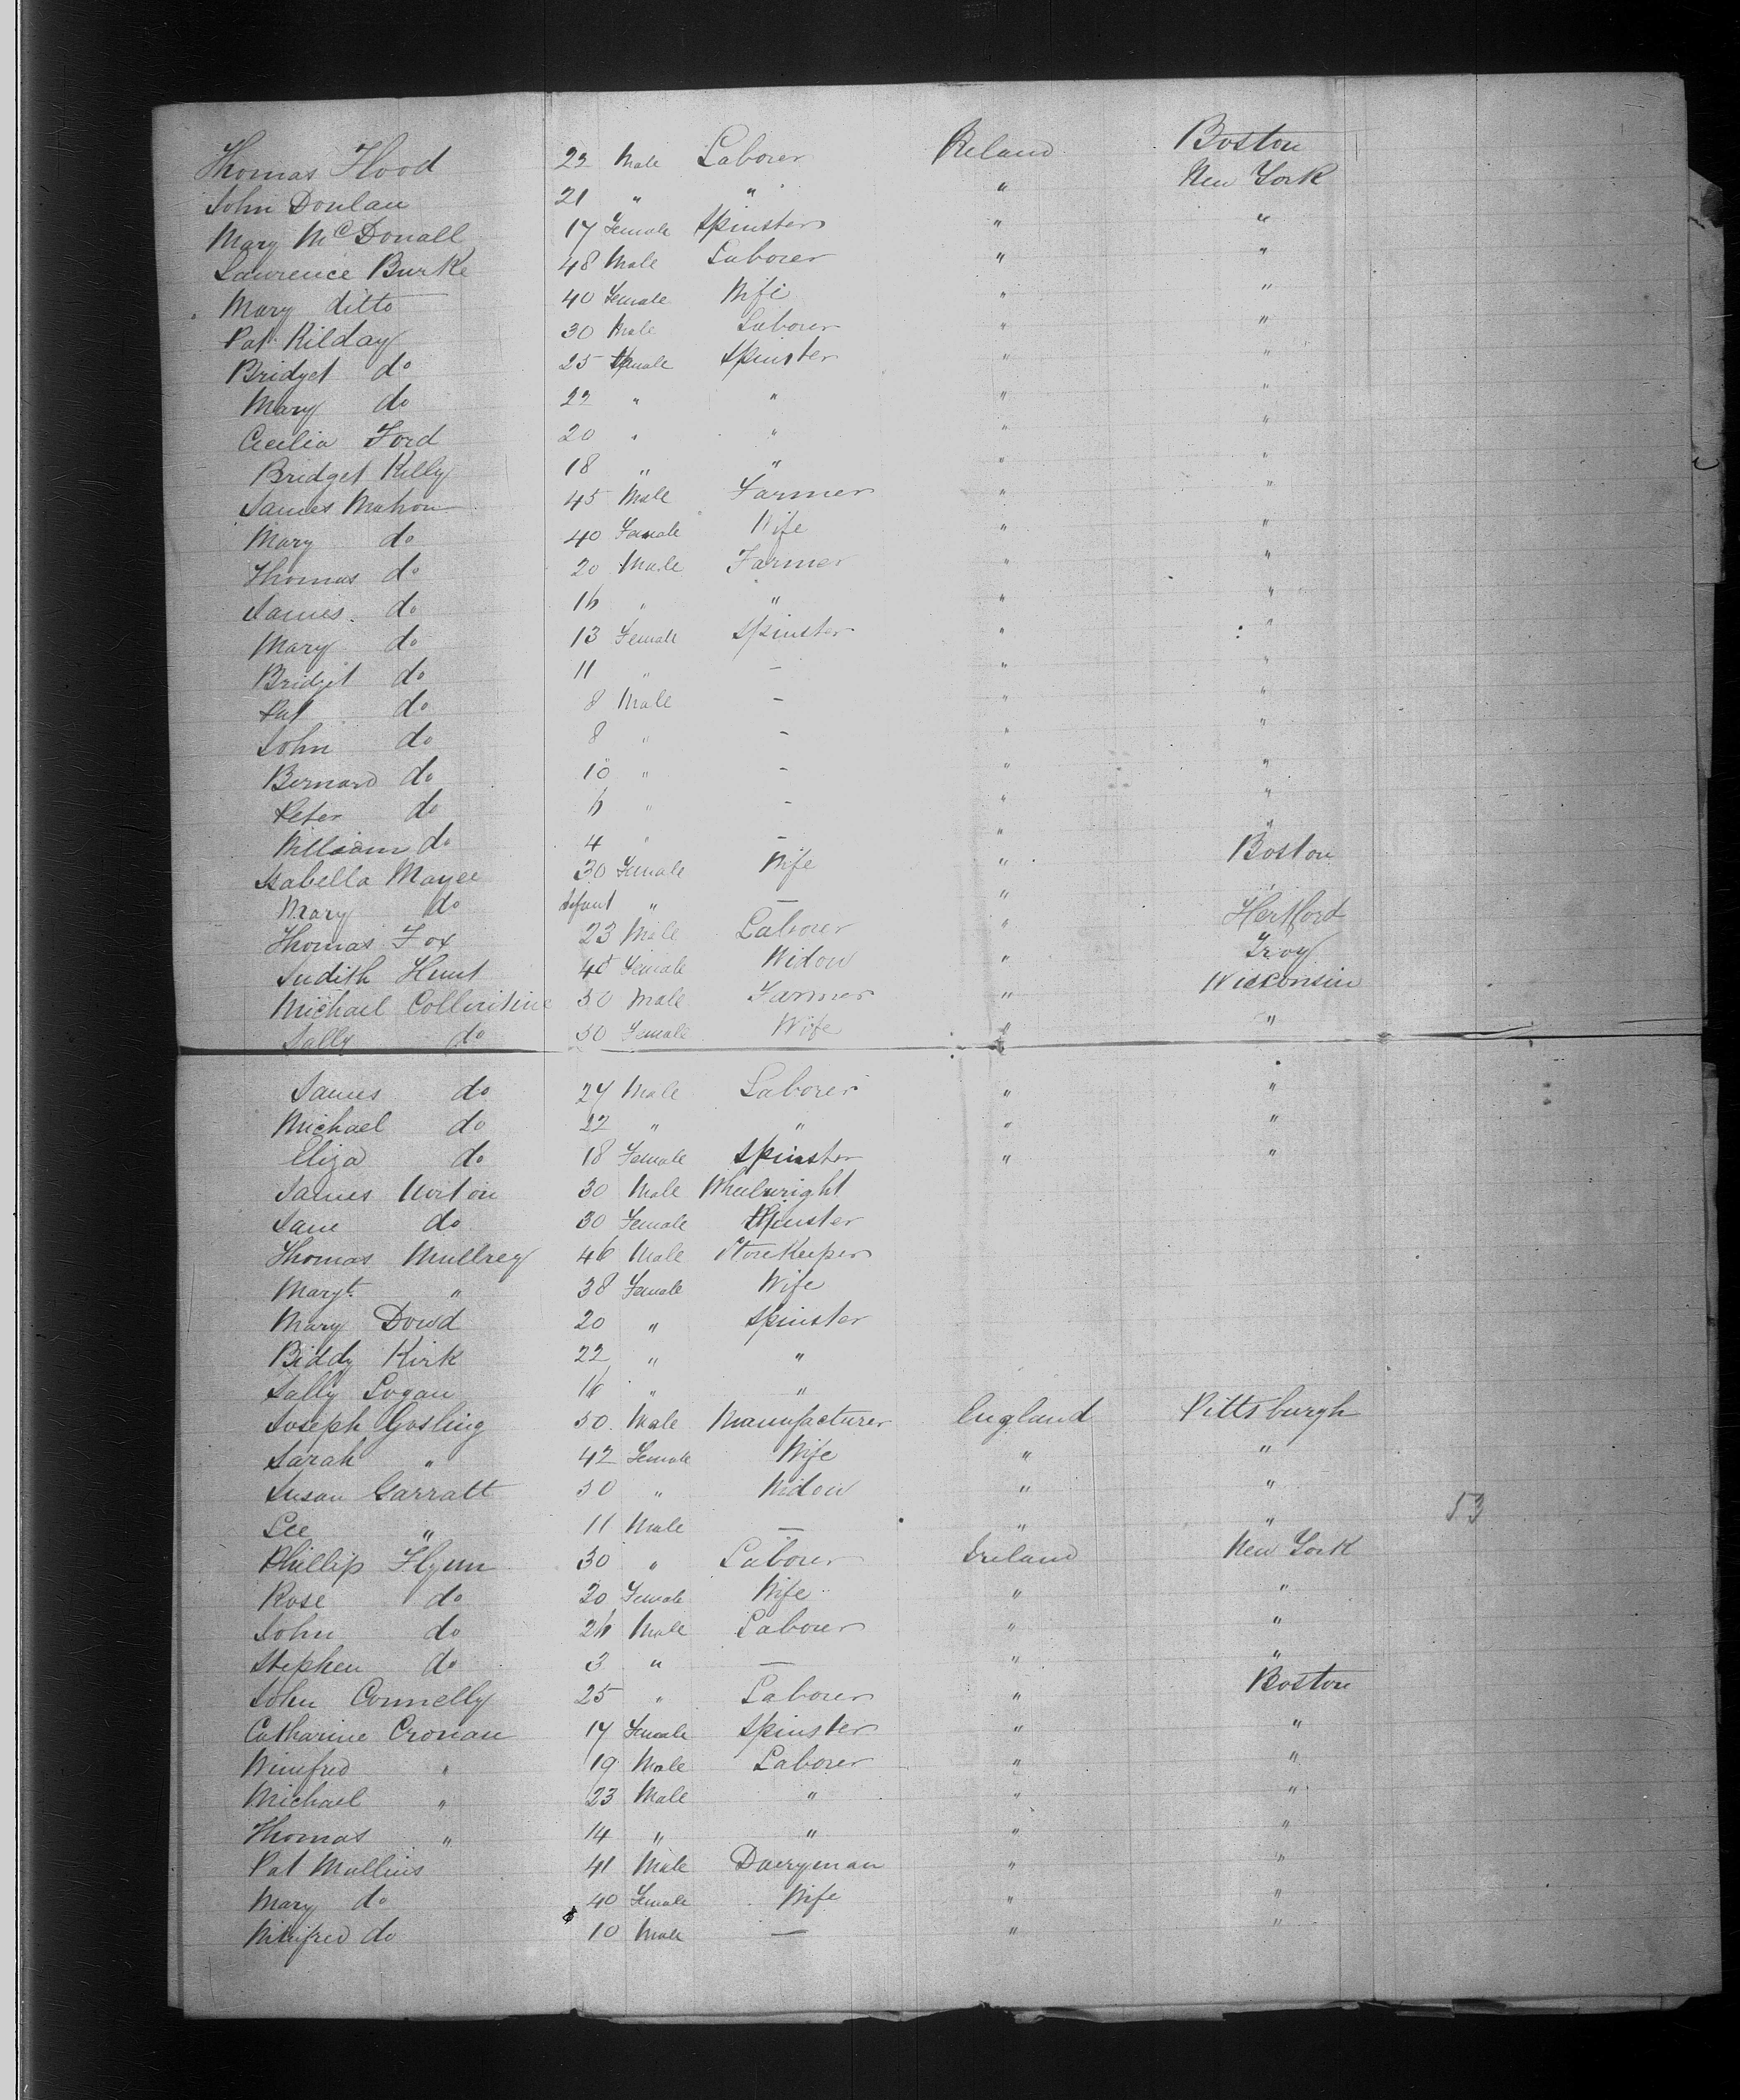 Thomas Flood 22 Male Laborer Ireland Boston
John Donlan 21 " " " New York
Mary McDonall 17 Female Spinster " "
Lawrence Burke 48 Male Laborer " "
Mary ditto 40 Female Wife " "
Pat Kilday 30 Male Laborer " "
Bridget do 25 Female Spinster " "
Mary do 22 " " " "
Cecilia Ford 20 " " " "
Bridget Kelly 18 " " " "
James Mahon 45 Male Farmer " "
Mary do 40 Female Wife " "
Thomas do 20 Male Farmer " "
James do 16 " " " "
Mary do 13 Female Spinster " "
Bridget do 11 " – " "
Pat do 8 Male – " "
John do 8 " – " "
Bernard do 10 " – " "
Peter do 6 " – " "
William do 4 " – " "
Isabella Mayee 30 Female Wife " Boston
Mary do Infant " – "
Thomas Fox 23 Male Laborer " Hertford
Judith Hunt 45 Female Widow " Troy
Michael 50 Male Farmer " Wisconsin
Sally do 50 Female Wife " "
James do 24 Male Laborer " "
Michael do 22 " " " "
Eliza do 18 Female Spinster " "
James Norton 30 Male Wheelwright
Jane do 30 Female Spinster
Thomas Mullrey 46 Male Storekeeper
Margt. " 38 Female Wife
Mary Dowd 20 " Spinster
Biddy Kirk 22 " "
Sally Logan 16 " "
Joseph Gosling 50 Male Manufacturer England Pittsburgh
Sarah " 42 Female Wife " "
Susan Garratt 50 " Widow " "
Lee " 11 Male – " " 53
Phillip Flynn 30 " Laborer Ireland New York
Rose do 30 Female Wife " "
John do 26 Male Laborer " "
Stephen do 3 " – " "
John Connelly 25 " Laborer " Boston
Catharine Cronan 17 Female Spinster " "
Winefred " 19 Male Laborer " "
Michael " 23 Male " " "
Thomas " 14 " " " "
Pat Mullins 41 Male Dairyman " "
Mary do 40 Female Wife " "
Winifred do 10 Male – " "